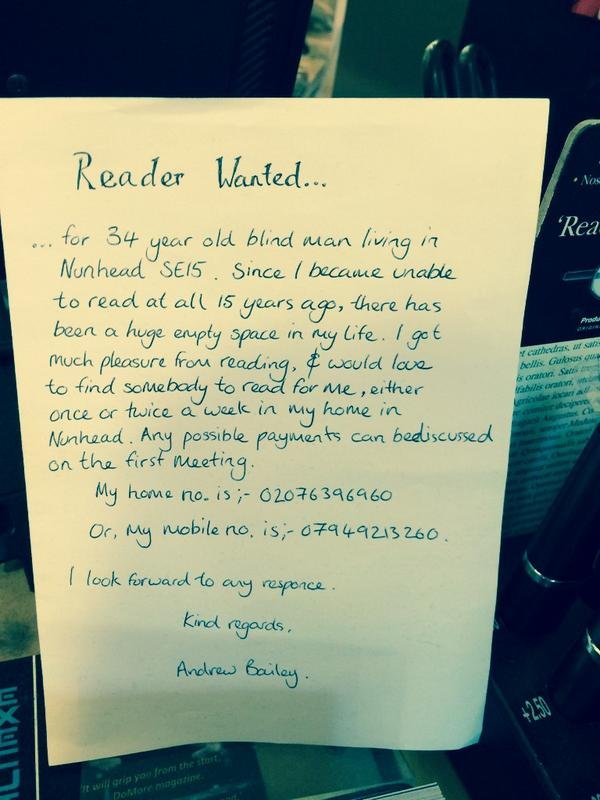 Reader Wanted...
... for 34 year old blind man living in
Nunhead SE15. Since I became unable
to read at all 15 years ago, there has
been a huge empty space in my life. I got
much pleasure from reading, & would love
to find somebody to read for me, either
once or twice a week in my home in
Nunhead. Any possible payments can bediscussed
on the first meeting.
My home no. is;- 02076396960
Or, My mobile no. is;- 07949213260.
I look forward to any responce.
Kind regards,
Andrew Bailey.
• Nos
'Rea
Produ
t cathedras, ut satis
bellis. Gulosus qua
£2.50
'It will grip you from the start.'
DoMore magazine.